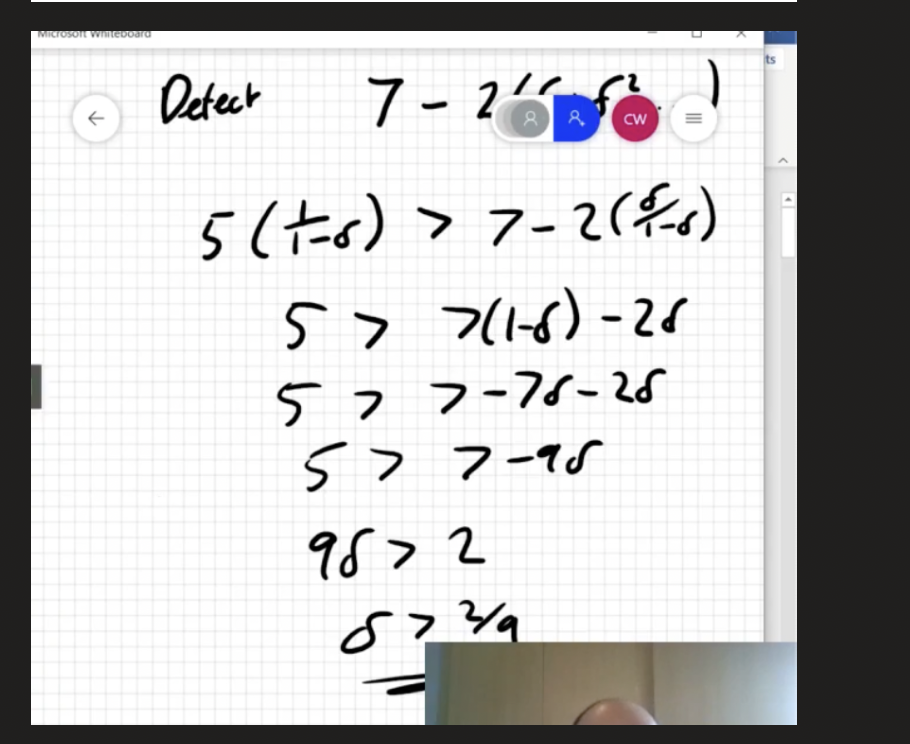 Microsoft Whiteboard
ts
Defect 7 - 2( δ²..)
CW
5(1/1-δ) > 7-2(δ/1-δ)
5 > 7(1-δ) -2δ
5 > 7-7δ-2δ
5 > 7-9δ
9δ > 2
δ > 2/9